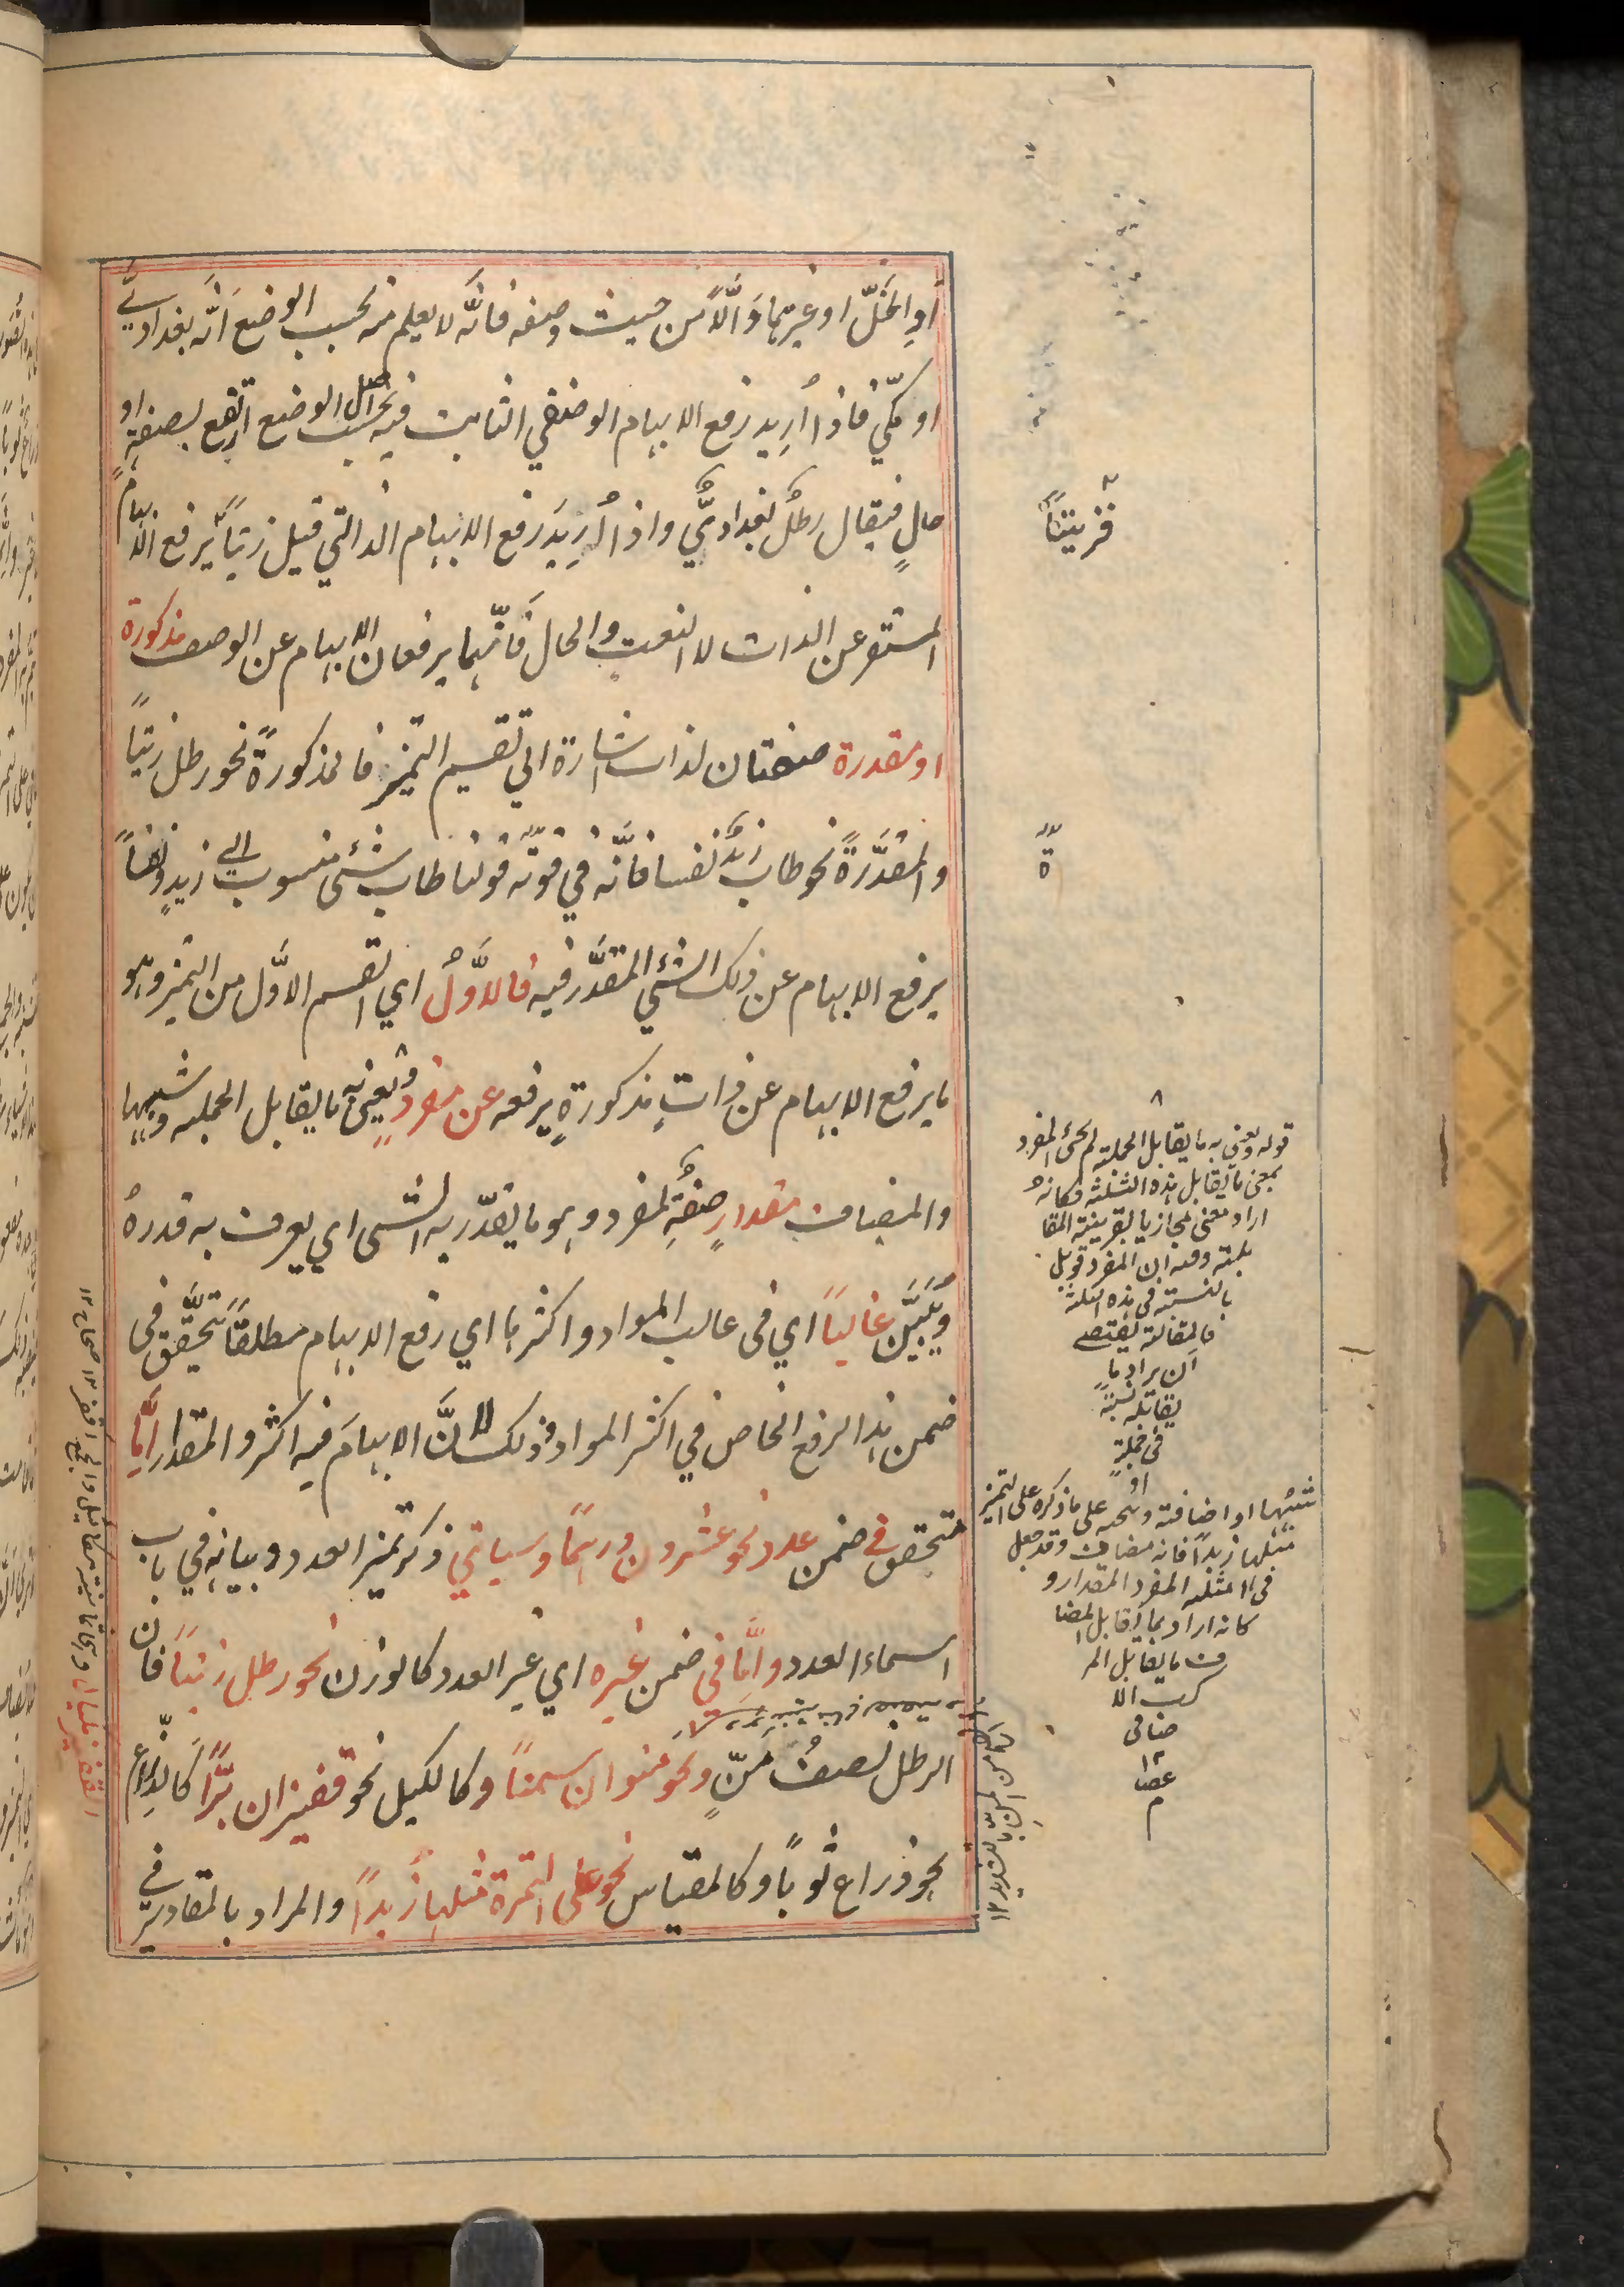 او الخلّ او غيرهما وَالَّا من حيث وصفه فانَّه لا يعلم منه بحسب الوضع انَّه بغدادىٌّ
او مكّي فاذا أُريد رفع الابهام الوصفي الثابت فيه بحسب اصل الوضع اتبع بصفةٍ او
حالٍ فيقال رطلٌ بغداديٌّ واذا أُرِيدَ رفع الابهام الذاتي قيل زيتًا يرفع الابهام
المستقر عن الذات لا النعت والحال فَانّهما يرفعان الابهام عن الوصف مذكورة
او مقدرة صفتان لذات اشارة الى تقسيم التميز فالمذكورةً نحو رطل زيتًا
والمقدَّرةً نحو طاب زيدٌ نفسا فانَّه في قوّة قولنا طاب شئ منسوب الى زيدٍ ونفسًا
يرفع الابهام عن ذلك الشئ المقدَّر فيه فالاوَّلُ اي القسم الاوَّل من التميز وهو
ما يرفع الابهام عن ذاتٍ مذكورةٍ يرفعه عن مفردٍ ويعنى به ما يقابل الجملة وشبهها
والمضاف مقدارٍ صفةٌ لمفرد وهو ما يقدّر به الشئ اي يعرف به قدرهُ
ويُبَيَّن غالبًا اي فى غالب المواد و اكثرها اي رفع الابهام مطلقًا تحقَّق فى
ضمن هذا الرفع الخاص في اكثر المواد وذلك لانَّ الابهامَ فيه اكثر والمقدار امّا
متحقق في ضمن عدد نحو عشرون درهمًا وسياتي ذكر تميز العدد وبيانه في باب
اسماء العدد وامَّا في ضمن غيره اي غير العدد كالوزن نحو رطل زيتًا فان
الرطل نصفُ مَنٍّ ونحو منوان سمنًا وكالكيل نحو قفيزان برًّا كالذراع
نحو ذراع ثوبًا وكالمقياس نحو على التمرة مثلها زبدًا والمراد بالمقادير في
قوله ويعنى به ما يقابل الجملة لم يجئ المفرد
بمعنى ما يقابل هذه الثلثة فكانهُ
اراد معنى مجازيا بقرينة المقا
بلة ومنه ان المفرد قوبل
بالنسبة فى هذه الثلثة
فالمقابلة يقتضے
ان يراد ما
يقابله نسبة
فى جملةٍ
او
شبهها او اضافة ويتجه على ما ذكره على التمرة
مثلها زبدًا فانه مضاف وقد جعل
فى الامثلة المفرد المقدار و
كانه اراد بما يقابل المضا
ف ما يقابل المر
كب الا
ضافى
١٢
عصا
م